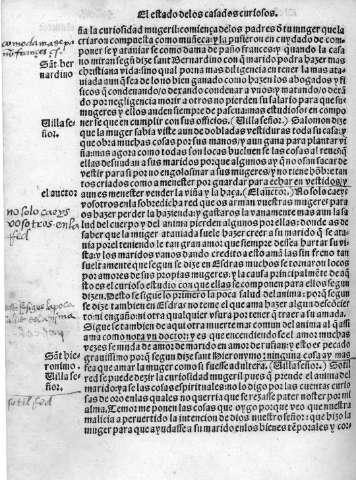 El estado delos casados curiosos.
ña la curiosidad mugeril comiença delos padres o su muger que la
criaron compuesta como muñeca: y la pusieron en cuydado de com-
poner se y ataviar se como dama de paño frances: y quando la casa
no miran segũ dize sant Bernardino con q̃ marido podra hazer mas
christiana vida sino qual porna mas diligencia en tener la mas ata-
uiada aun q̃ sea de lo no bien ganado como hazen los abogados y fi-
sicos q̃ condenando/o derando condenar a vnos: y matando/o derã
do por negligencia morir a otros no pierden su salario para que sus
mugeres y ellos anden siempre de pascua mas estudiosos en compo-
ner se que en cumplir con sus officios. (Uilla señor.) Salomon dize
que la muger sabia viste aun de dobladas vestiduras toda su casa: y
que obra muchas cosas por sus manos/y aun gana para plantar vi
ña: mas agora como todas son locas bueluen se las cosas al reues q̃
ellas desnudan a sus maridos porque algunos ay q̃ no osan sacar de
vestir para si por no engolosinar a sus mugeres: y no tiene hõbre tan
tos criados como a menester por guardar para echar en vestidos/y
aun es menester vender la viña y la haça. (El auctor.) No solo caeys
vosotros enla sobredicha red que os arman vuestras mugeres para
os hazer perder la hazienda: y gastaros la vanamente mas aun la sa
lud del cuerpo y del anima pierden algunos por ellas: donde as de
saber que la muger atauiada suele hazer creer a su marido q̃ se ata
nia por el teniendo le tan gran amor que siempre dessea hartar su vi
sta: y los maridos vanos dando credito a esto amã las sin freno tan
sueltamente que segun se dize en Esdras muchos se tornaron locos
por amores de sus propias mugeres: y la causa principalmẽte de aq̃
sto es el curioso estudio con que ellas se componen para ellos segun
dizen. Desto se sigue lo primero la poca salud del anima: porq̃ segun
se dize tambien en Esdras no teme el que ama hazer algun desconcier
to ni engaño: ni otra qualquier vsura por tener q̃ traer a su amada.
Sigue se tambien de aqui otra muerte mas comun del anima al q̃ assi
ama como nota vn doctor: y es que encendiendo se el amor muchas
vezes se muda de amor de marido en amor de rufian: y esto es pecado
grauissimo porq̃ segun dize sant Hieronymo: ninguna cosa ay mas
fea que amar la muger como si fuesse adultera. (Uilla señor.) Sotil
red se puede dezir la curiosidad mugeril pues q̃ prende el anima del
marido: y a se las cosas espirituales: no lo digo por las cuentas curio
sas de oro enlas quales no querria que se rezasse pater noster por mi
alma. Temor me ponen las cosas que oygo porque veo que nuestra
malicia a peruertido la intencion de dios nuestro señor: que hizo la
muger para que ayudasse a su marido enlos bienes tẽporales y cor-
como dama se pa
no frances &c.
Sãt ber-
nardino
Uilla se-
ñor.
el auctor
no solo caeys
vosotros en la
red
Sãt hie-
ronimo.
Uilla se-
ñor.
sotil red